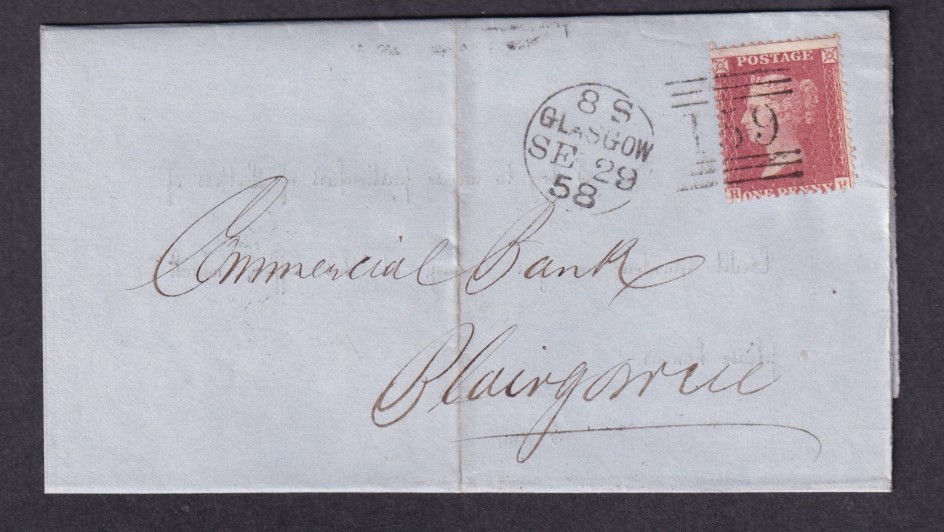 POSTAGE
8 S
GLASGOW
SE 29
58
159
ONE PENNY
Commercial Bank
Blairgowrie